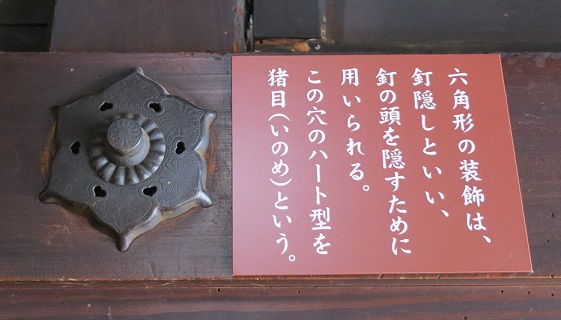 六角形の装飾は、
釘隠しといい、
釘の頭を隠すために
用いられる。
この穴のハート型を
猪目(いのめ)という。